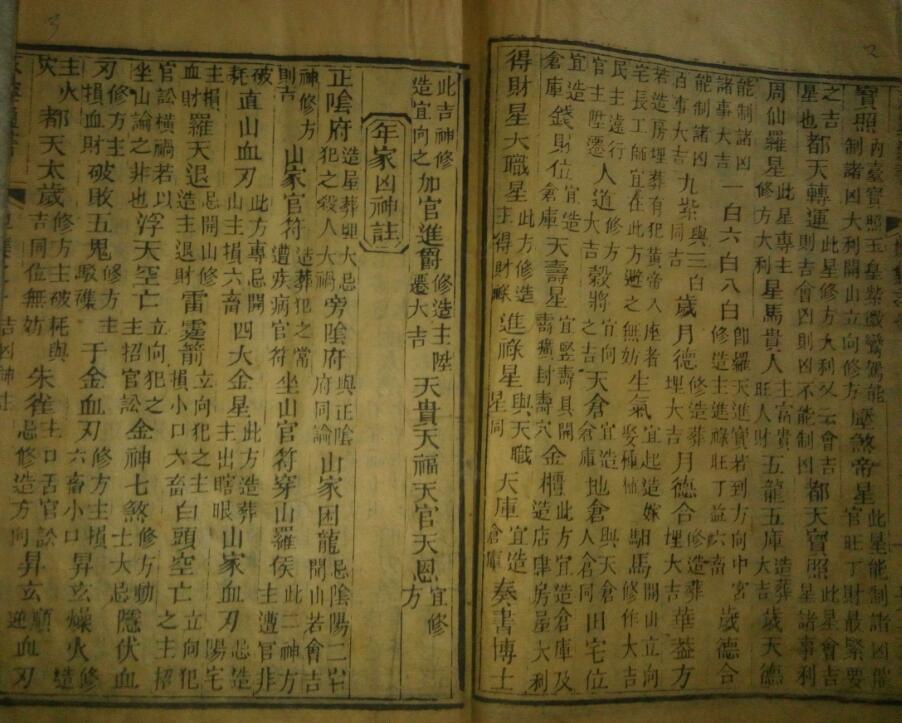 寶照內臺寶照玉皇紫微鸞駕能制諸凶大利開山立向修方壓煞帝星此星能制諸凶能官旺丁財最緊要
之吉神此星修方大利又云會吉此星會吉星也都天轉運則吉會凶則凶不能制凶都天寶照星諸事利
周仙羅星此星專主修方大利星馬貴人主富貴旺人財五龍五庫造葬大吉歲天德
能制諸凶諸事大吉一白六白八白即羅天進寶若到方向中宮修造主進祿旺丁益六畜歲德合
能制諸凶百事大吉九紫與三白同吉歲月德修造葬埋大吉月德合修造葬埋大吉華蓋方
若造房埋葬有犯黃帝入座者宅長工師宜在此方避之無妨生氣宜起造嫁娶種植馹馬開山立向修作大吉
民主遠行官主陞遷人道修方大吉穀將宜向之吉天倉宜造倉庫地倉與天倉同人倉同田宅位
宜造倉庫錢財位宜造倉庫天壽星宜豎壽具開壽壙封壽穴金櫃此方宜造倉庫及造店肆房屋大利
得財星大職星此方修造主得財祿進祿星與天職星同天庫宜造倉庫奏書博士
此吉神修造宜向之加官進爵修造主陞遷大吉天貴天福天官天恩宜修方
年家凶神註
正陰府造屋葬即犯之殺人大忌大禍旁陰府與正陰府同論山家困龍忌陰陽二宅開山若會吉
神修方則吉山家官符造葬犯之常遭疾病官符坐山官符穿山羅侯此二神方主遭官非
破耗直山血刃此方專忌開山主損六畜四大金星此方造葬主出瞎眼山家血刃忌造陽宅
主損血財羅天退忌開山修造主退財雷霆箭立向犯之主損小口六畜白頭空亡立向犯之主招
官訟橫禍若以坐山論之非也浮天空亡立向犯之主招官訟金神七煞修方動土大忌隱伏血
刃修方主損血財破敗五鬼修方主駁雜于金血刃修方主損六畜小口昇玄燥火修造
主火災都天太歲修方主破耗與吉同位無妨朱雀主口舌官訟忌修造方向昇玄顯逆血刃